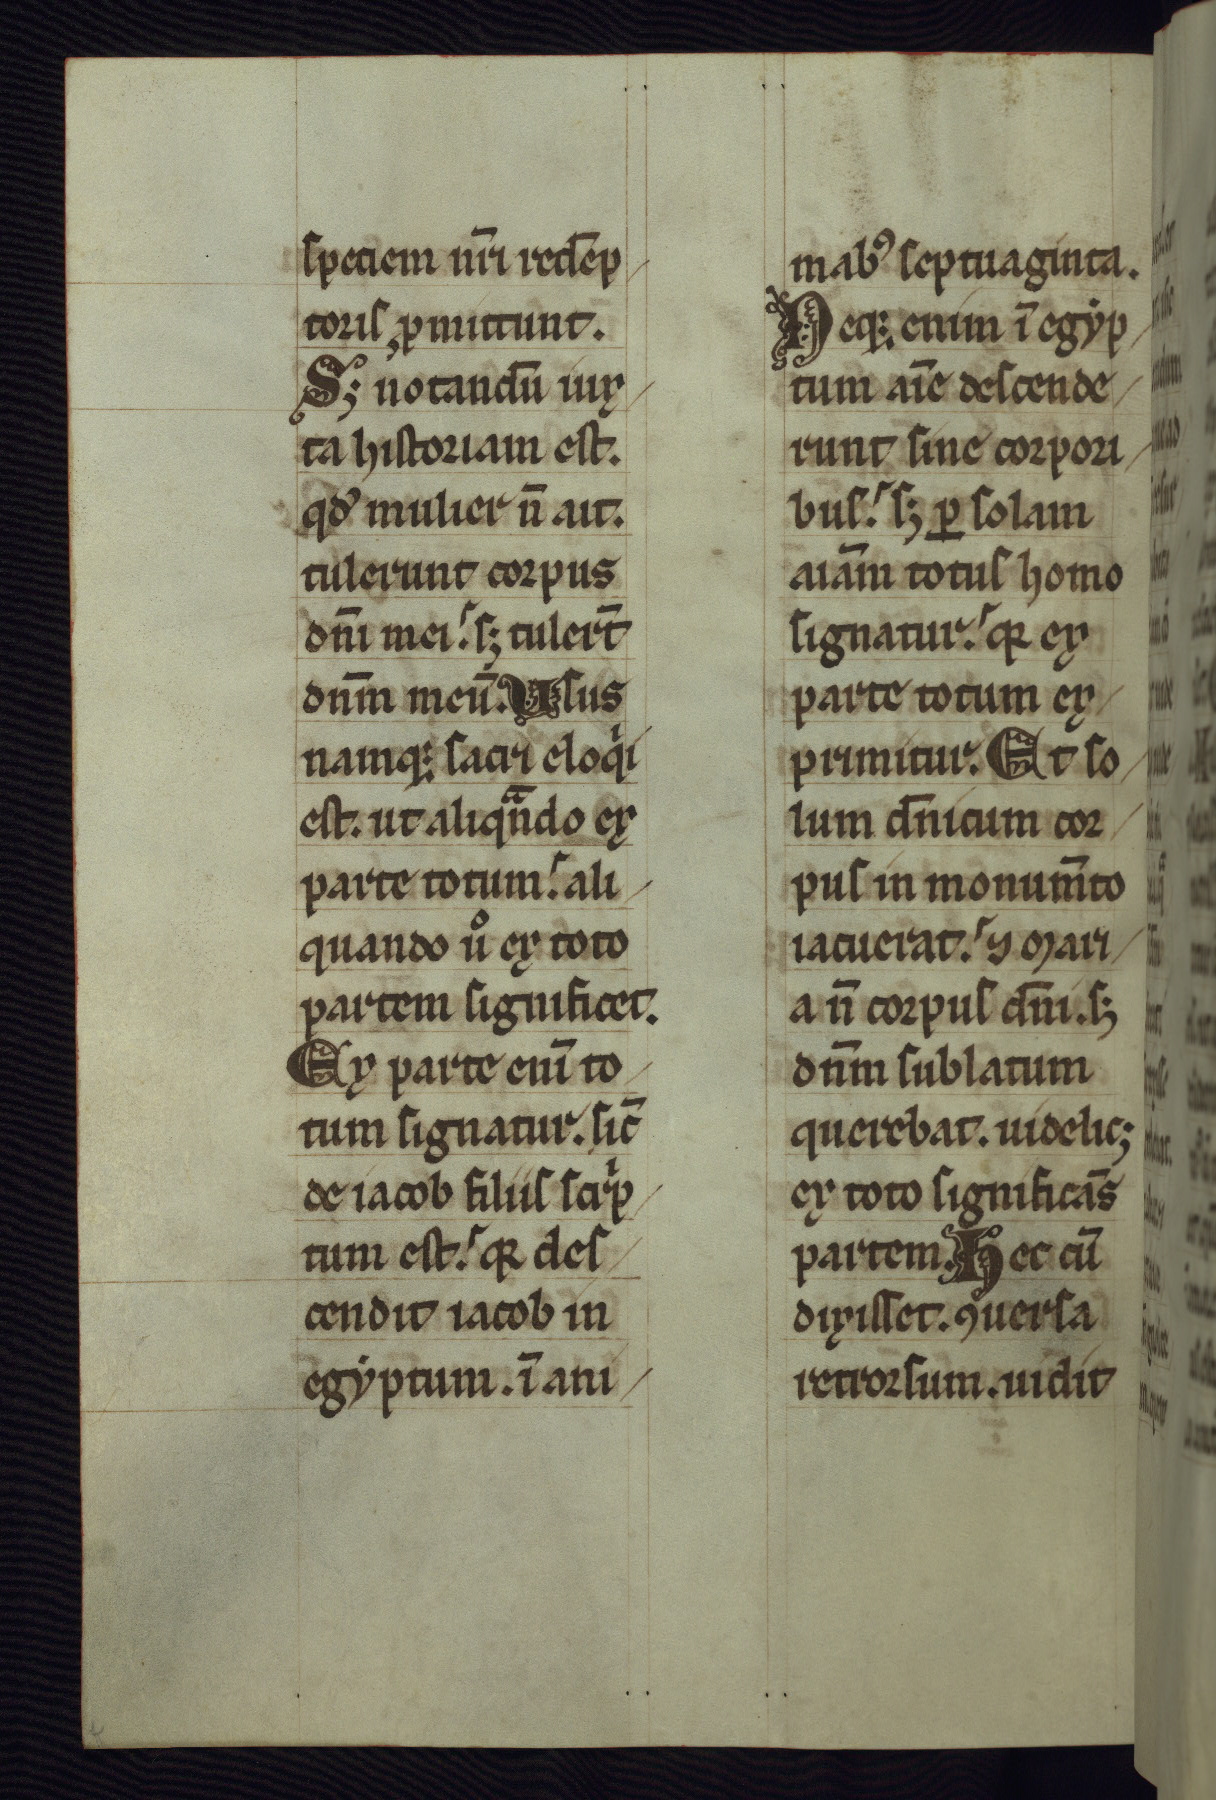 speciem nr̄i redēp
toris ꝓmittunt.
Sꝫ notandū iux
ta historiam est.
qđ mulier n̄ ait.
tulerunt corpus
dn̄i mei. sꝫ tulert̄
dn̄m meū. Usus
namqꝫ sacri eloqͥi
est. ut aliqᷓndo ex
parte totum. ali
quando uͦ ex toto
partem significet.
Ex parte eniī to
tum signatur. sic̄
de iacob filiis scͥp
tum est. qꝛ des
cendit iacob in
egẏptum. ī ani
mabꝰ septuaginta.
Neqꝫ enim ī egẏp
tum aīe descende
runt sine corpori
bus. sꝫ ꝑ solam
aiām totus homo
signatur. qꝛ ex
parte totum ex
primitur. Et so
lum dn̄icum cor
pus in monum̄to
iacuerat. ⁊ mari
a n̄ corpus dn̄i. sꝫ
dn̄m sublatum
querebat. uidelicꝫ
ex toto significās
partem. Hec cū
dixisset. ꝯuersa
retrorsum. uidit